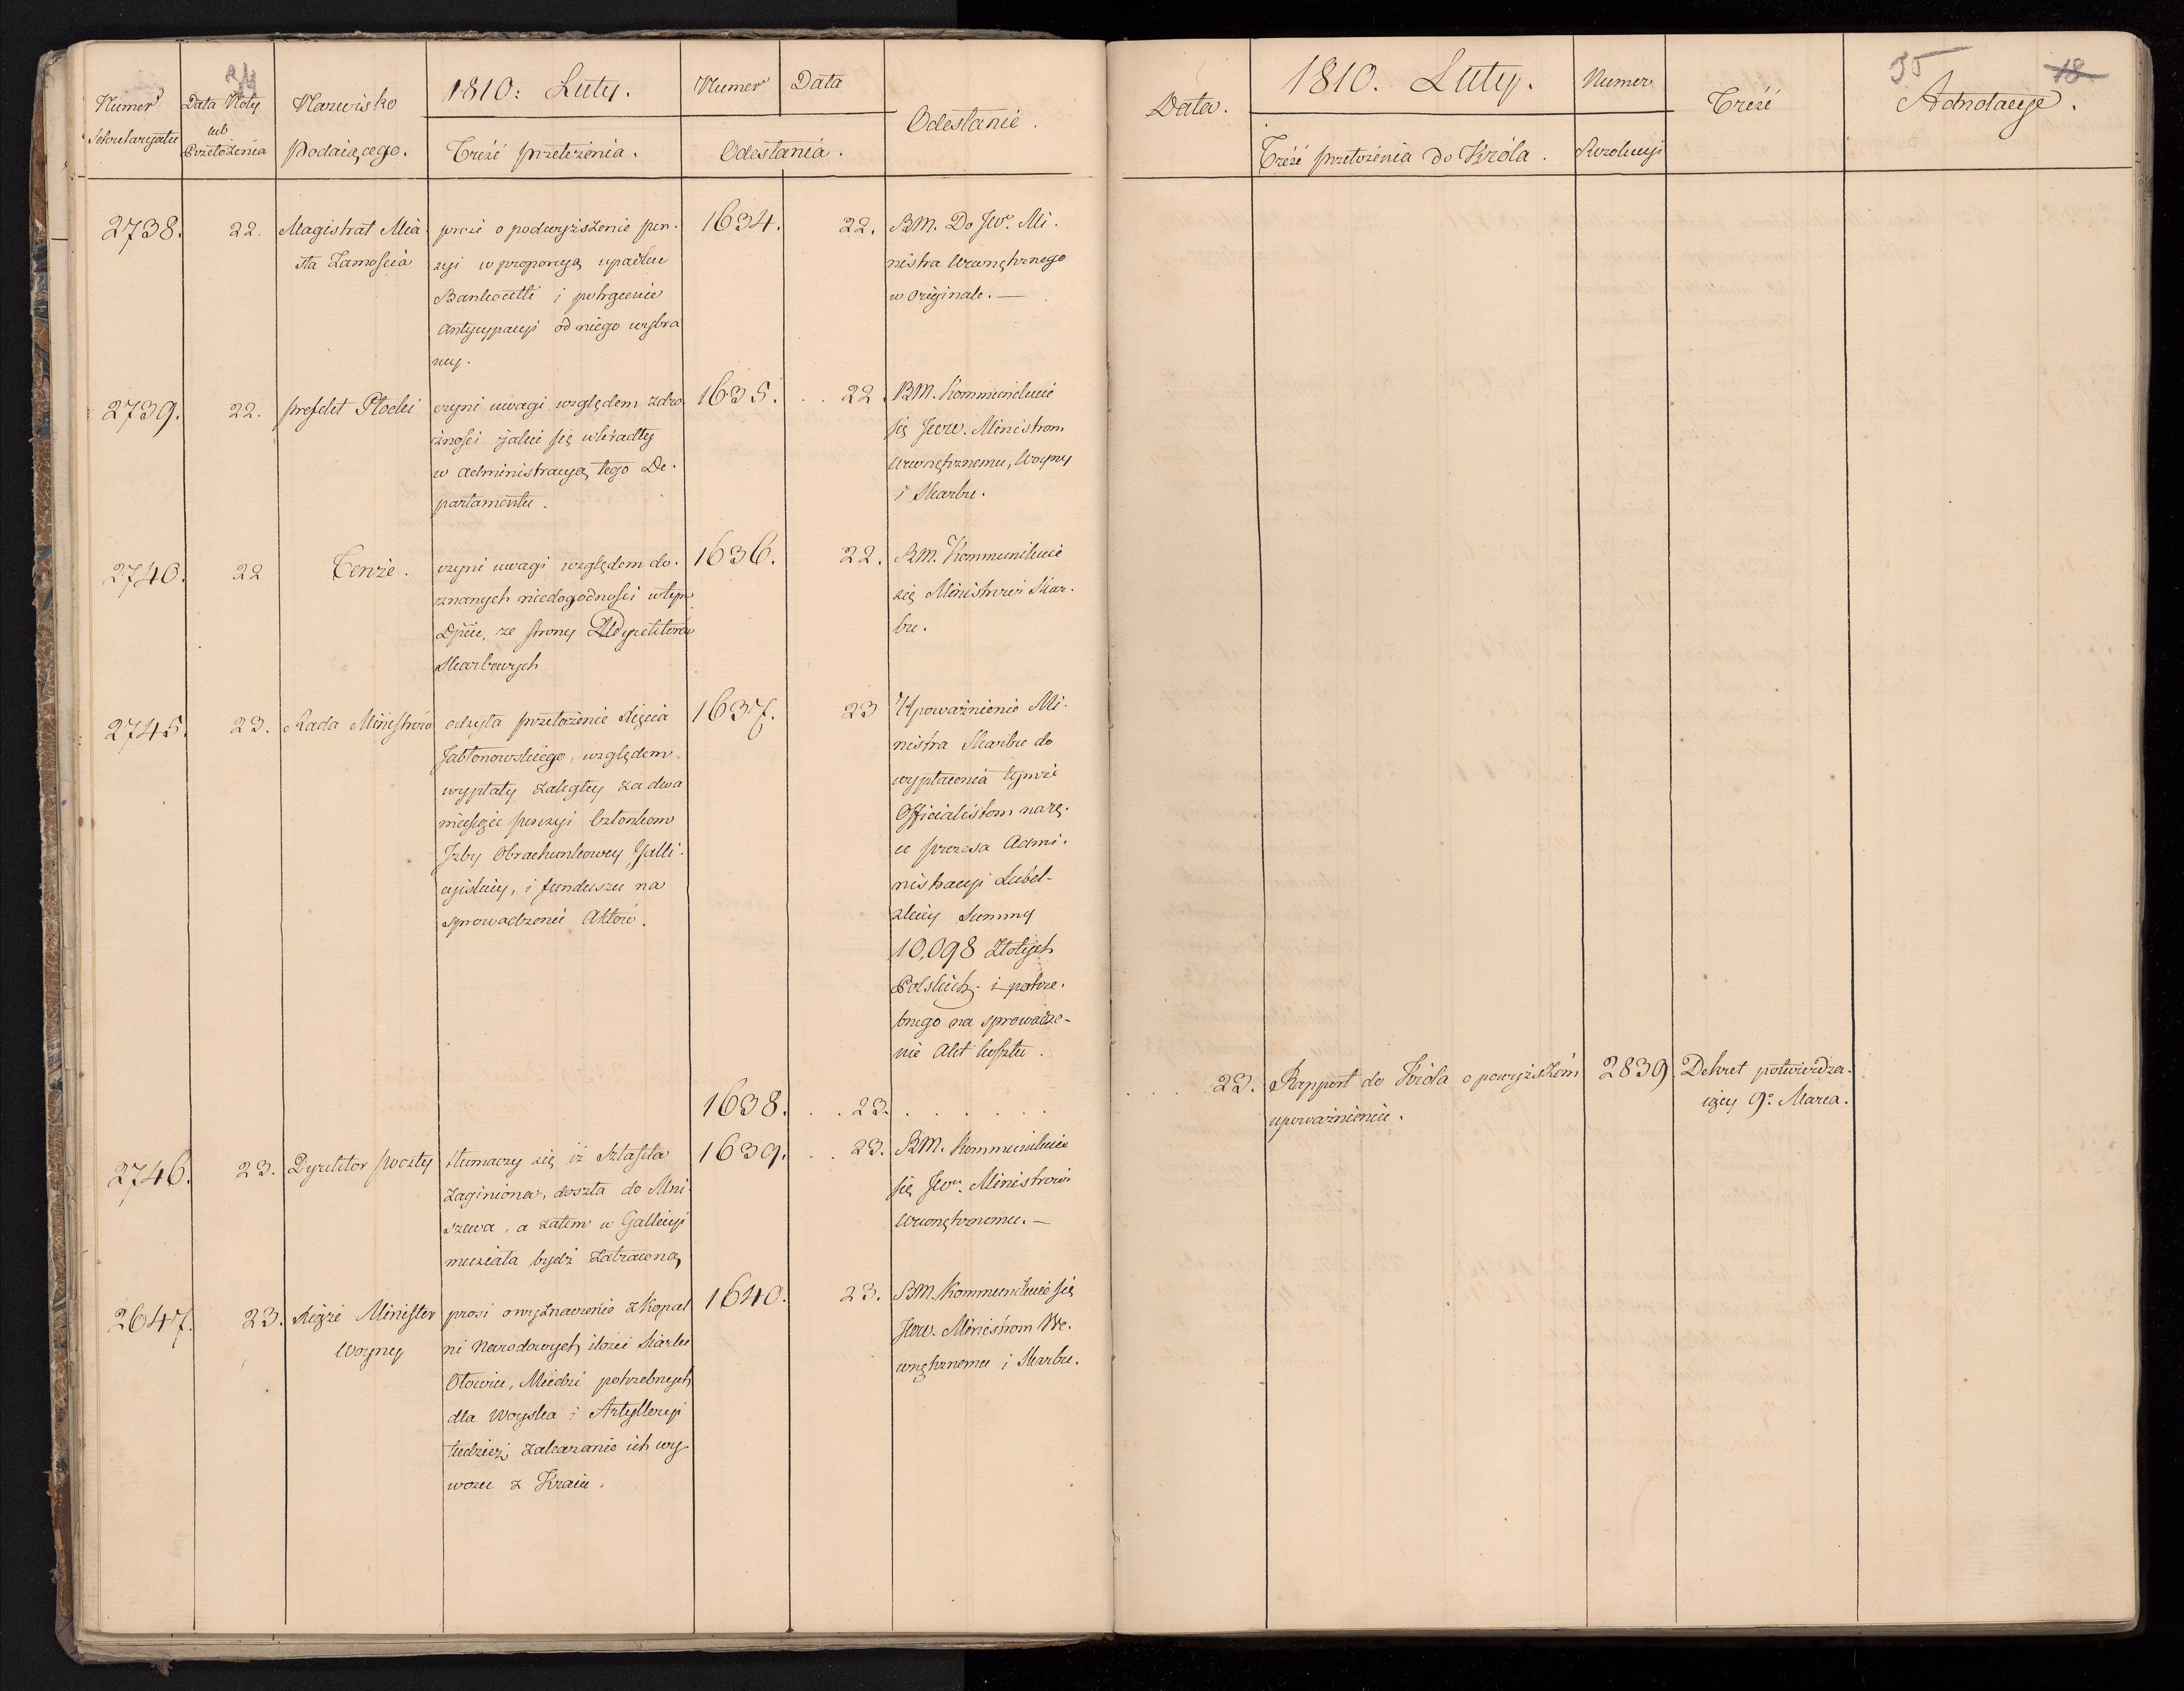 Numer
Sekretaryatu
Data Noty
lub
Przełożenia
Nazwisko
Podaiącego.
1810: Luty.
Treść przełożenia.
Numer
Data
Odesłania.
Odesłanie.
2738.
22.
Magistrat Mia
sta Zamościa
prosi o podwyższenie pen-
syi w proporcyą upadku
Bankocetli i potrącenie
antycypacyi od niego wybra
ney.
1634.
22.
BM. Do JW. Mi-
nistra Wewnętrznego
w originale. —
2739.
22.
prefekt Płocki
czyni uwagi względem zdro
żności jakie się wkradły
w administracyą tego De-
partamentu.
1635.
22
BM. Kommunikuie
się JWW. Ministrom
Wewnętrznemu, Woyny
i Skarbu.
2740.
22
Tenże.
czyni uwagi względem do-
znanych niedogodności w tym
Dpcie, ze strony Dyrektorów
Skarbowych
1636.
22.
BM. Kommunikuie
się Ministrowi Skar-
bu.
2745.
23.
Rada Ministrów
odsyła przełożenie Xięcia
Jabłonowskiego, względem
wypłaty zaległey za dwa
miesiące pensyi Członkom
Izby Obrachunkowey Galli-
cyiskiey, i funduszu na
sprowadzenie Aktów.
1637.
23
Upoważnienie Mi-
nistra Skarbu do
wypłacenia tymże
Officialistom na rę-
ce prezesa Admi-
nistracyi Lubel-
skiey Summy
10,098 Złotych
Polskich i potrze-
bnego na sprowadze-
nie Akt kosztu.
1638.
. . 23. . . . . .
2746.
23.
Dyrektor poczty
tłumaczy się iż Sztafeta
zaginiona, doszła do Mni-
szewa, a zatem w Gallicyi
musiała bydź zatraconą
1639.
. . 23.
BM. Kommunikuie
się JW. Ministrowi
Wewnętrznemu. —
2647.
23.
Xiąże Minister
Woyny
prosi o wyznaczenie z Kopal
ni Narodowych ilości Siarki
Ołowiu, Miedzi potrzebnych
dla Woyska i Artylleryi
tudzież zakazanie ich wy
wozu z Kraiu.
1640.
23.
BM. Kommunikuie się
JWW. Ministrom We-
wnętrznemu i Skarbu.
35
18
Data.
1810. Luty.
Treść przełożenia do Króla.
Numer
Rezolucyi
Treść
Adnotacye.
. . . . 23.
Rapport do Króla o powyższém
upoważnieniu.
2839.
Dekret potwierdza-
iący 9o Marca.